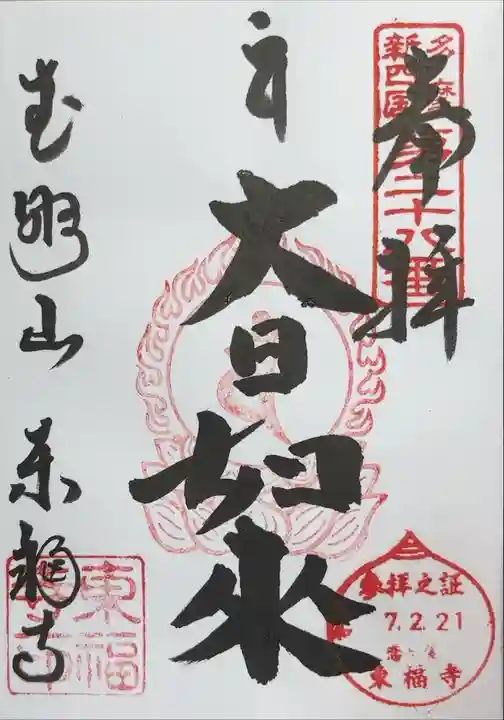 奉拝
多摩新四国
第二十八番
大日如来
武州山
東福寺
東福寺
参拝之証
7.2.21
東福寺